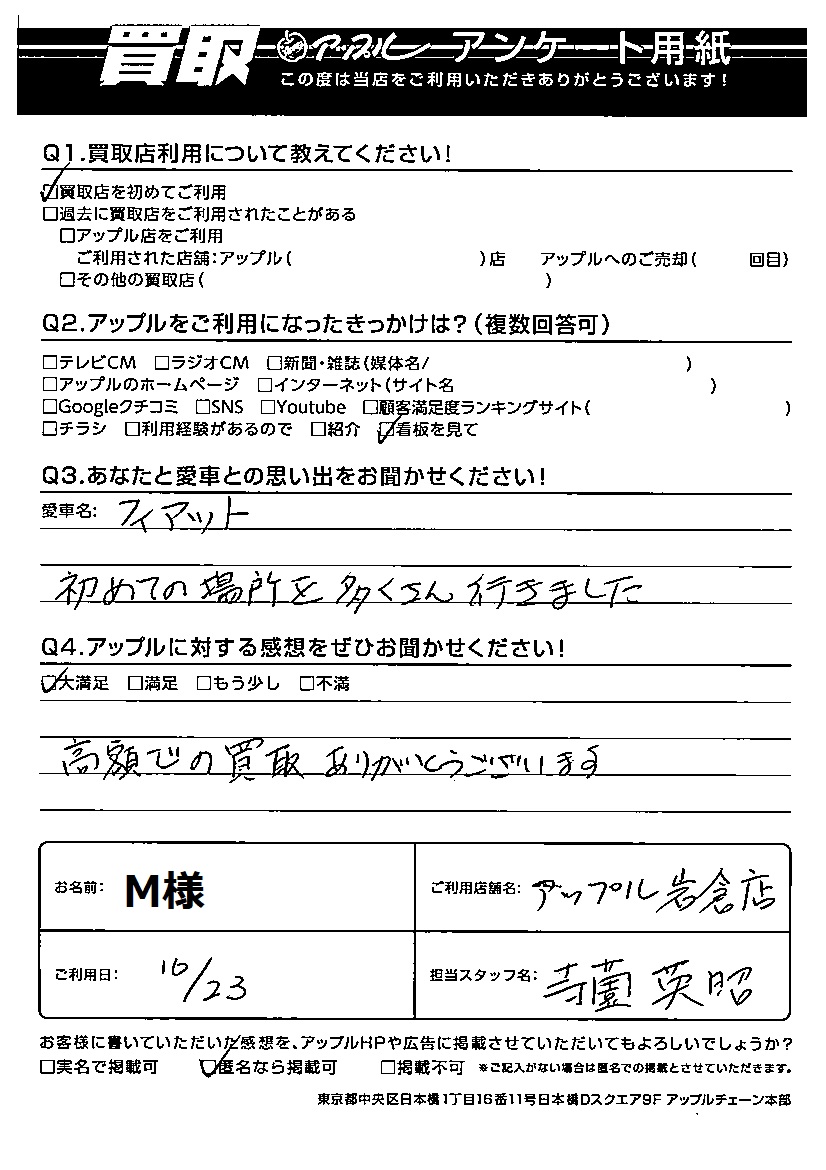 買取 アップル アンケート用紙
この度は当店をご利用いただきありがとうございます!
Q1.買取店利用について教えてください!
☑買取店を初めてご利用
□過去に買取店をご利用されたことがある
□アップル店をご利用
ご利用された店舗:アップル( )店 アップルへのご売却( 回目)
□その他の買取店( )
Q2.アップルをご利用になったきっかけは?(複数回答可)
□テレビCM □ラジオCM □新聞・雑誌(媒体名/ )
□アップルのホームページ □インターネット(サイト名 )
□Googleクチコミ □SNS □Youtube □顧客満足度ランキングサイト( )
□チラシ □利用経験があるので □紹介 ☑看板を見て
Q3.あなたと愛車との思い出をお聞かせください!
愛車名: フィアット
初めての場所を多くさん行きました
Q4.アップルに対する感想をぜひお聞かせください!
☑大満足 □満足 □もう少し □不満
高額での買取ありがとうございます
お名前: M様 ご利用店舗名: アップル岩倉店
ご利用日: 10/23 担当スタッフ名: 寺薗 英昭
お客様に書いていただいた感想を、アップルHPや広告に掲載させていただいてもよろしいでしょうか?
□実名で掲載可 ☑匿名なら掲載可 □掲載不可 ※ご記入がない場合は匿名での掲載とさせていただきます。
東京都中央区日本橋1丁目16番11号日本橋Dスクエア9F アップルチェーン本部